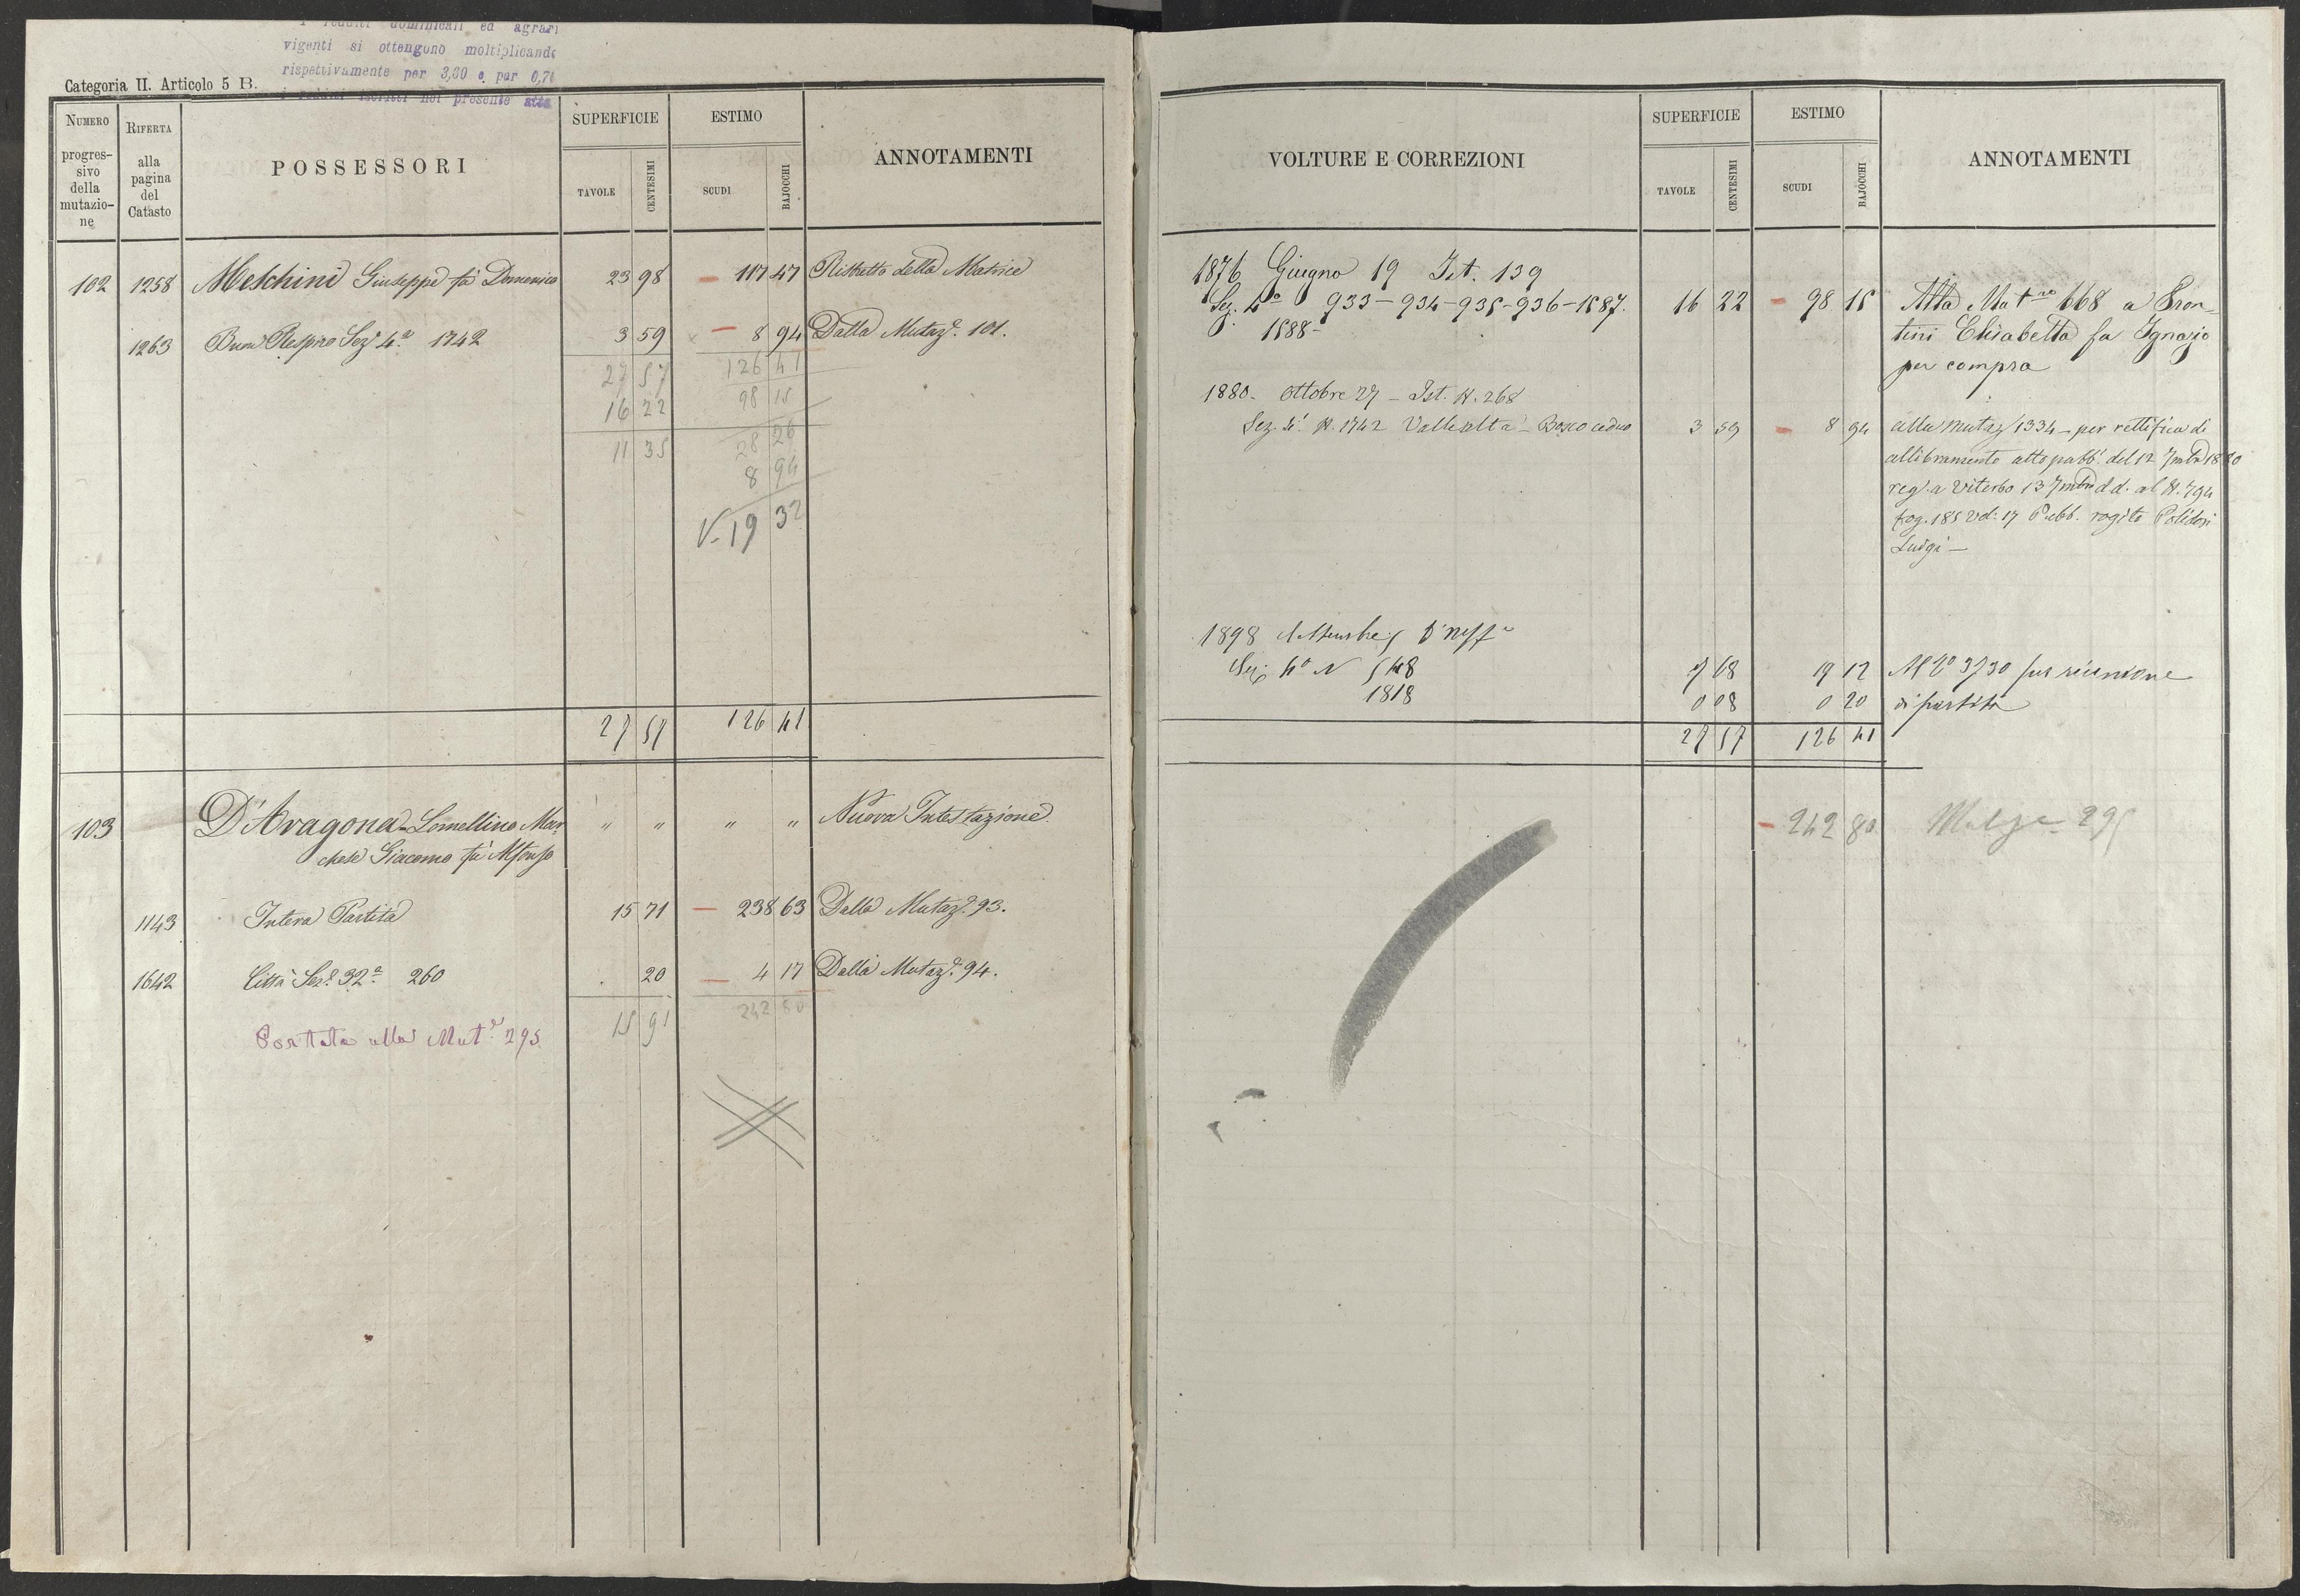 vigenti si ottengono moltiplicando
rispettivamente per 3,60 e per 0,70
Categoria II. Articolo 5 B.
NUMERO
progres-
sivo
della
mutazio-
ne
RIFERTA
alla
pagina
del
Catasto
POSSESSORI
SUPERFICIE
TAVOLE
CENTESIMI
ESTIMO
SCUDI
BAJOCCHI
ANNOTAMENTI
102 1258 Meschini Giuseppe fu Domenico 23 98 — 117 47 Ristretto della Matrice
1263 Buon Respiro Sez. 4.ª 1742 3 59 — 8 94 Dalla Mutaz.e 101.
27 57 126 41
16 22 98 15
11 35 28 26
8 94
V. 19 32
27 57 126 41
103 D'Aragona-Lomellino Mar
chese Giacomo fu Alfonso
" " " " Nuova Intestazione.
1143 Intera Partita 15 71 — 238 63 Dalla Mutaz.e 93.
1642 Città Sez.e 32.ª 260 . 20 — 4 17 Dalla Mutaz.e 94.
15 91 242 80
Portata alla Mut.e 295
VOLTURE E CORREZIONI
SUPERFICIE
TAVOLE
CENTESIMI
ESTIMO
SCUDI
BAJOCCHI
ANNOTAMENTI
1876 Giugno 19 Ist. 139
Sez. 4.a 933-934-935-936-1587. 16 22 — 98 15 Alla Mut.ne 668 a Fron-
1588- tini Elisabetta fu Ignazio
per compra
1880. Ottobre 27 - Ist. N. 268
Sez. 4.ª N. 1742 Vallealta - Bosco ceduo 3 59 — 8 94 alla mutaz 1334 - per rettifica di
allibramento atto pubb. del 12 7mbre 1880
reg. a Viterbo 13 7mbre d.d. al N. 794
fog. 185 vol: 17 Pubb. rogito Polidori
Luigi -
1898
Sez. 4.a N 548 7 68 19 12 Al N.o 3730 per riunione
1818 0 08 0 20 di partita
27 57 126 41
— 242 80 295